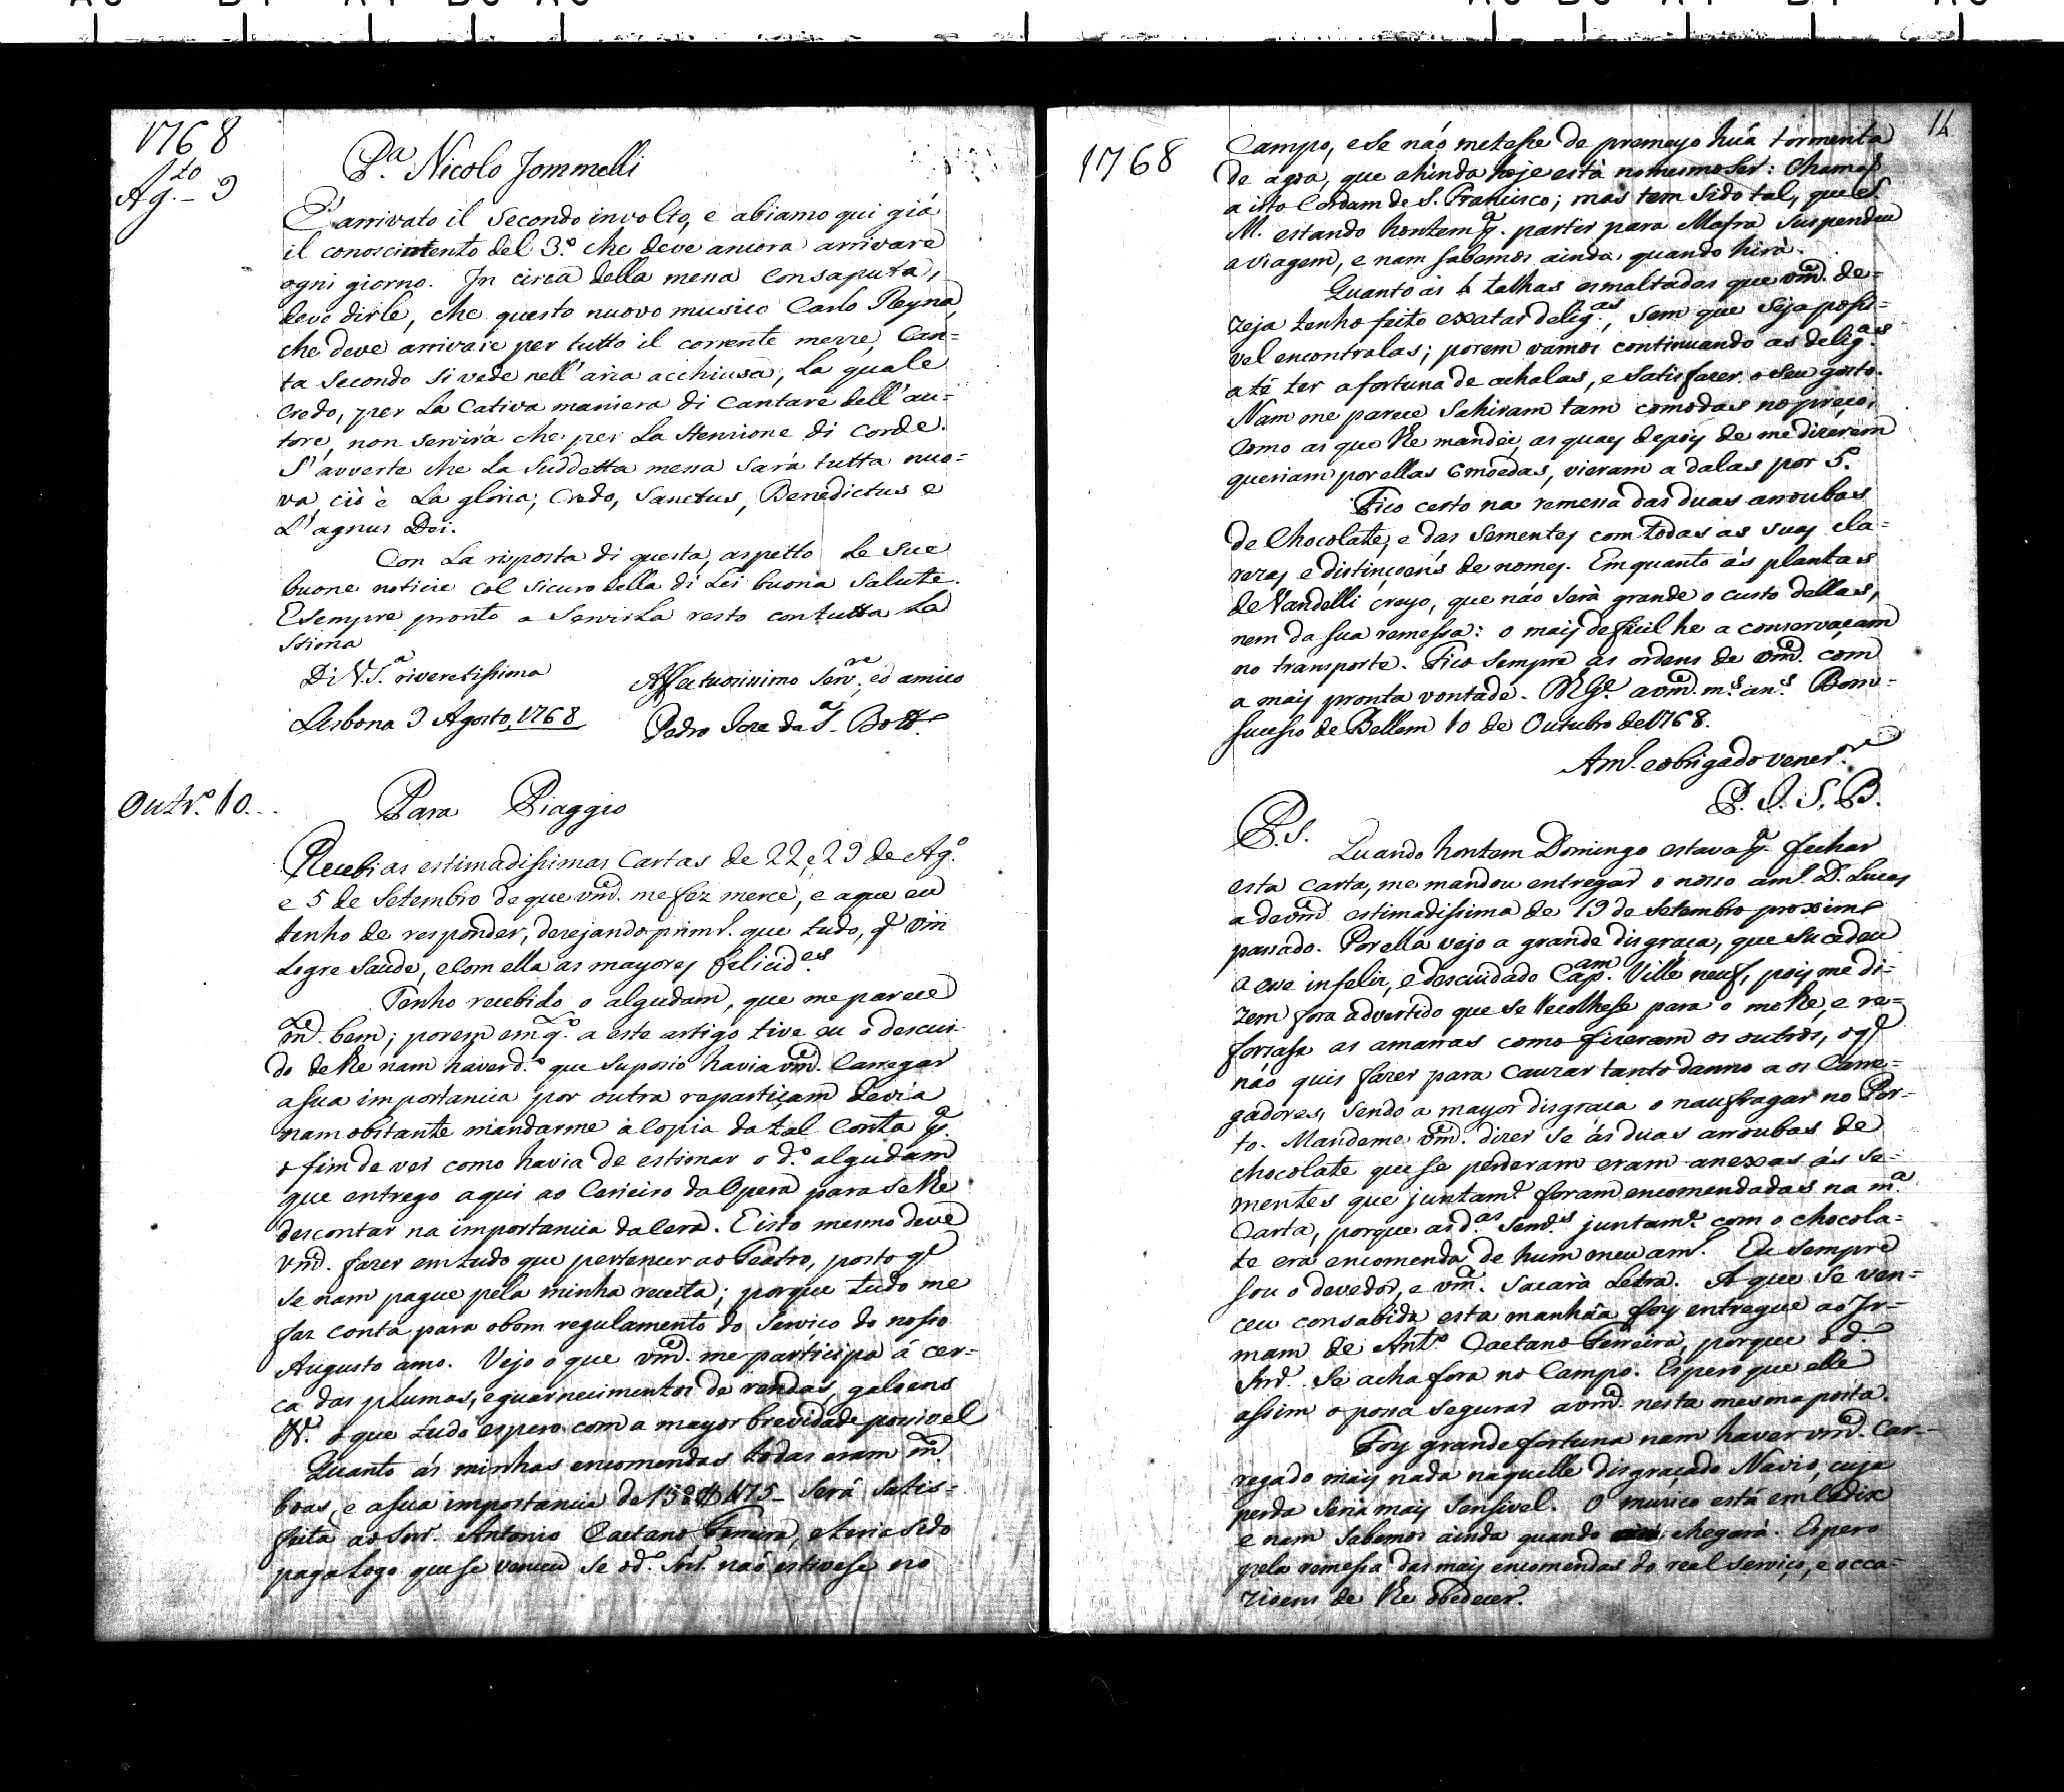 1768
Ag.to 9
P.a Nicolo Jommelli
E' arrivato il secondo involto, e abiamo qui già
il conoscimento del 3.º che deve ancora arrivare
ogni giorno. In circa della messa consaputa,
devo dirle, che questo nuovo musico Carlo Reyna,
che deve arrivare per tutto il corrente messe, Can=
ta secondo si vede nell' aria acchiusa, La quale
credo, per La Cativa maniera di Cantare dell' au=
tore, non servirà che per La stenzione di corde.
S' averte che La suddetta messa sarà tutta nuo=
va, ciò è La gloria, Credo, Sanctus, Benedictus e
L' agnus Dei.
Con La risposta di questa, aspetto Le sue
buone noticie col sicuro della di Lei buona salute.
E sempre pronto a servirLa resto con tutta La
stiona
Di V. S.a riveretissima
Affectuosissimo Serv.re ed amico
Lisbona 9 Agosto, 1768
Pedro Joze da S.a Bott.º
Outr.º 10..
Para Piaggio
Recebi as estimadissimas Cartas de 22, e 29 de Ag.º
e 5 de Setembro de que vm.ce me fez merce, e a que eu
tenho de responder, dezejando prim.º que tudo, q' vm
Logre saude, e Com ella as mayores felicid.es
Tenho recebido o algudam, que me parece
m.to bem; porem em q.º a este artigo tive eu o descui-
do de lhe nam haver d.º que suposto havia vm.ce Carregar
a sua importancia por outra repartiçam devia
nam obstante mandarme a Copia da tal Conta p.a
o fim de ver como havia de estimar o d.º algudam
que entrego aqui ao Cerieiro da Opera para se lhe
descontar na importancia da Cera. E isto mesmo deve
vm.ce fazer em tudo que pertencer ao Teatro, posto q'
se nam pague pela minha receita; porque tudo me
faz conta para o bom regulamento do Serviço do nosso
Augusto amo. Vejo o que vm.ce me participa á cer=
ca das plumas, e guarnecimentos de rendas, galoens
&.ª o que tudo espero com a mayor brevidade possivel
Quanto ás minhas encomendas todas eram m.to
boas, e a sua importancia de 158$475_ Será satis=
feita ao Snr. Antonio Caetano Ferreira, e teria sido
paga Logo que se venceu se o d.º Snr. não estivese no
1768
14
Campo, e se não metesse de premeyo huã tormenta
de agoa, que ahinda hoje està no mesmo ser: Chamaõ
a isto Cordam de S. Francisco; mas tem sido tal, que S.
M. estando hontem p.a partir para Mafra suspendeu
a viagem, e nam sabemos ainda quando hirà.
Quanto ás 4 talhas esmaltadas que vm.ce de=
zeja tenho feito exatas delig.as, sem que seja possi=
vel encontralas; porem vamos continuando as delig.as
até ter a fortuna de achalas, e satisfazer o seu gosto.
Nam me parece Sahiram tam comodas no preço,
como as que lhe mandei, as quaes depois de me dizerem
queriam por ellas 6 moedas, vieram a dalas por 5.
Fico certo na remessa das duas arroubas
de Chocolate, e das sementes com todas as suas cla=
rezas, e distinçoens de nomes. Emquanto ás plantas
de Vandelli creyo, que não serà grande o custo dellas,
nem da sua remessa: o mais deficil he a conservaçam
no transporte. Fico sempre ás ordens de vm.ce com
a mais pronta vontade. D.s G.e a vm.ce m.s an.s Bom-
sucesso de Bellem 10 de Outubro de 1768.
Am.º e obrigado vener.or
P. J. S. B.
P. S.
Quando hontem Domingo estava p.a fechar
esta carta, me mandou entregar o nosso am.º D. Lucas
a de vm.ce estimadissima de 19 de Setembro proximo
passado. Por ella vejo a grande disgraça, que sucedeu
a esse infeliz, e descuidado Cap.am Ville neuf, pois me di=
zem fora advertido que se recolhese para o molhe, e re=
forsase as amarras como fizeram os outros, o q'
não quis fazer para cauzar tanto danno a os Carre=
gadores, sendo a mayor disgraça o naufragar no Por=
to. Mandeme vm.ce dizer se ás duas arroubas de
chocolate que se perderam eram anexas ás se=
mentes que juntam.e foram encomendadas na m.a
Carta, porque as d.as sem.es juntam.e com o chocola=
te era encomenda de hum meu am.º Eu sempre
sou o devedor, e vm.ce sacará Letra. A que se ven=
ceu consabida esta manhãa foy entregue ao Ir=
mam de Ant.º Caetano Ferreira, porque o d.º
Snr. Se acha fora no Campo. Espero que elle
assim o possa segurar a vm.ce nesta mesma posta.
Foy grande fortuna nam haver vm.ce Car-
regado mais nada naquelle disgraçado Navio, cuja
perda seria mais sensivel. O musico está em Cadix
e nam sabemos ainda quando chegará. Espero
pela remessa das mais encomendas do real serviço, e occa=
zioens de lhe obedecer.